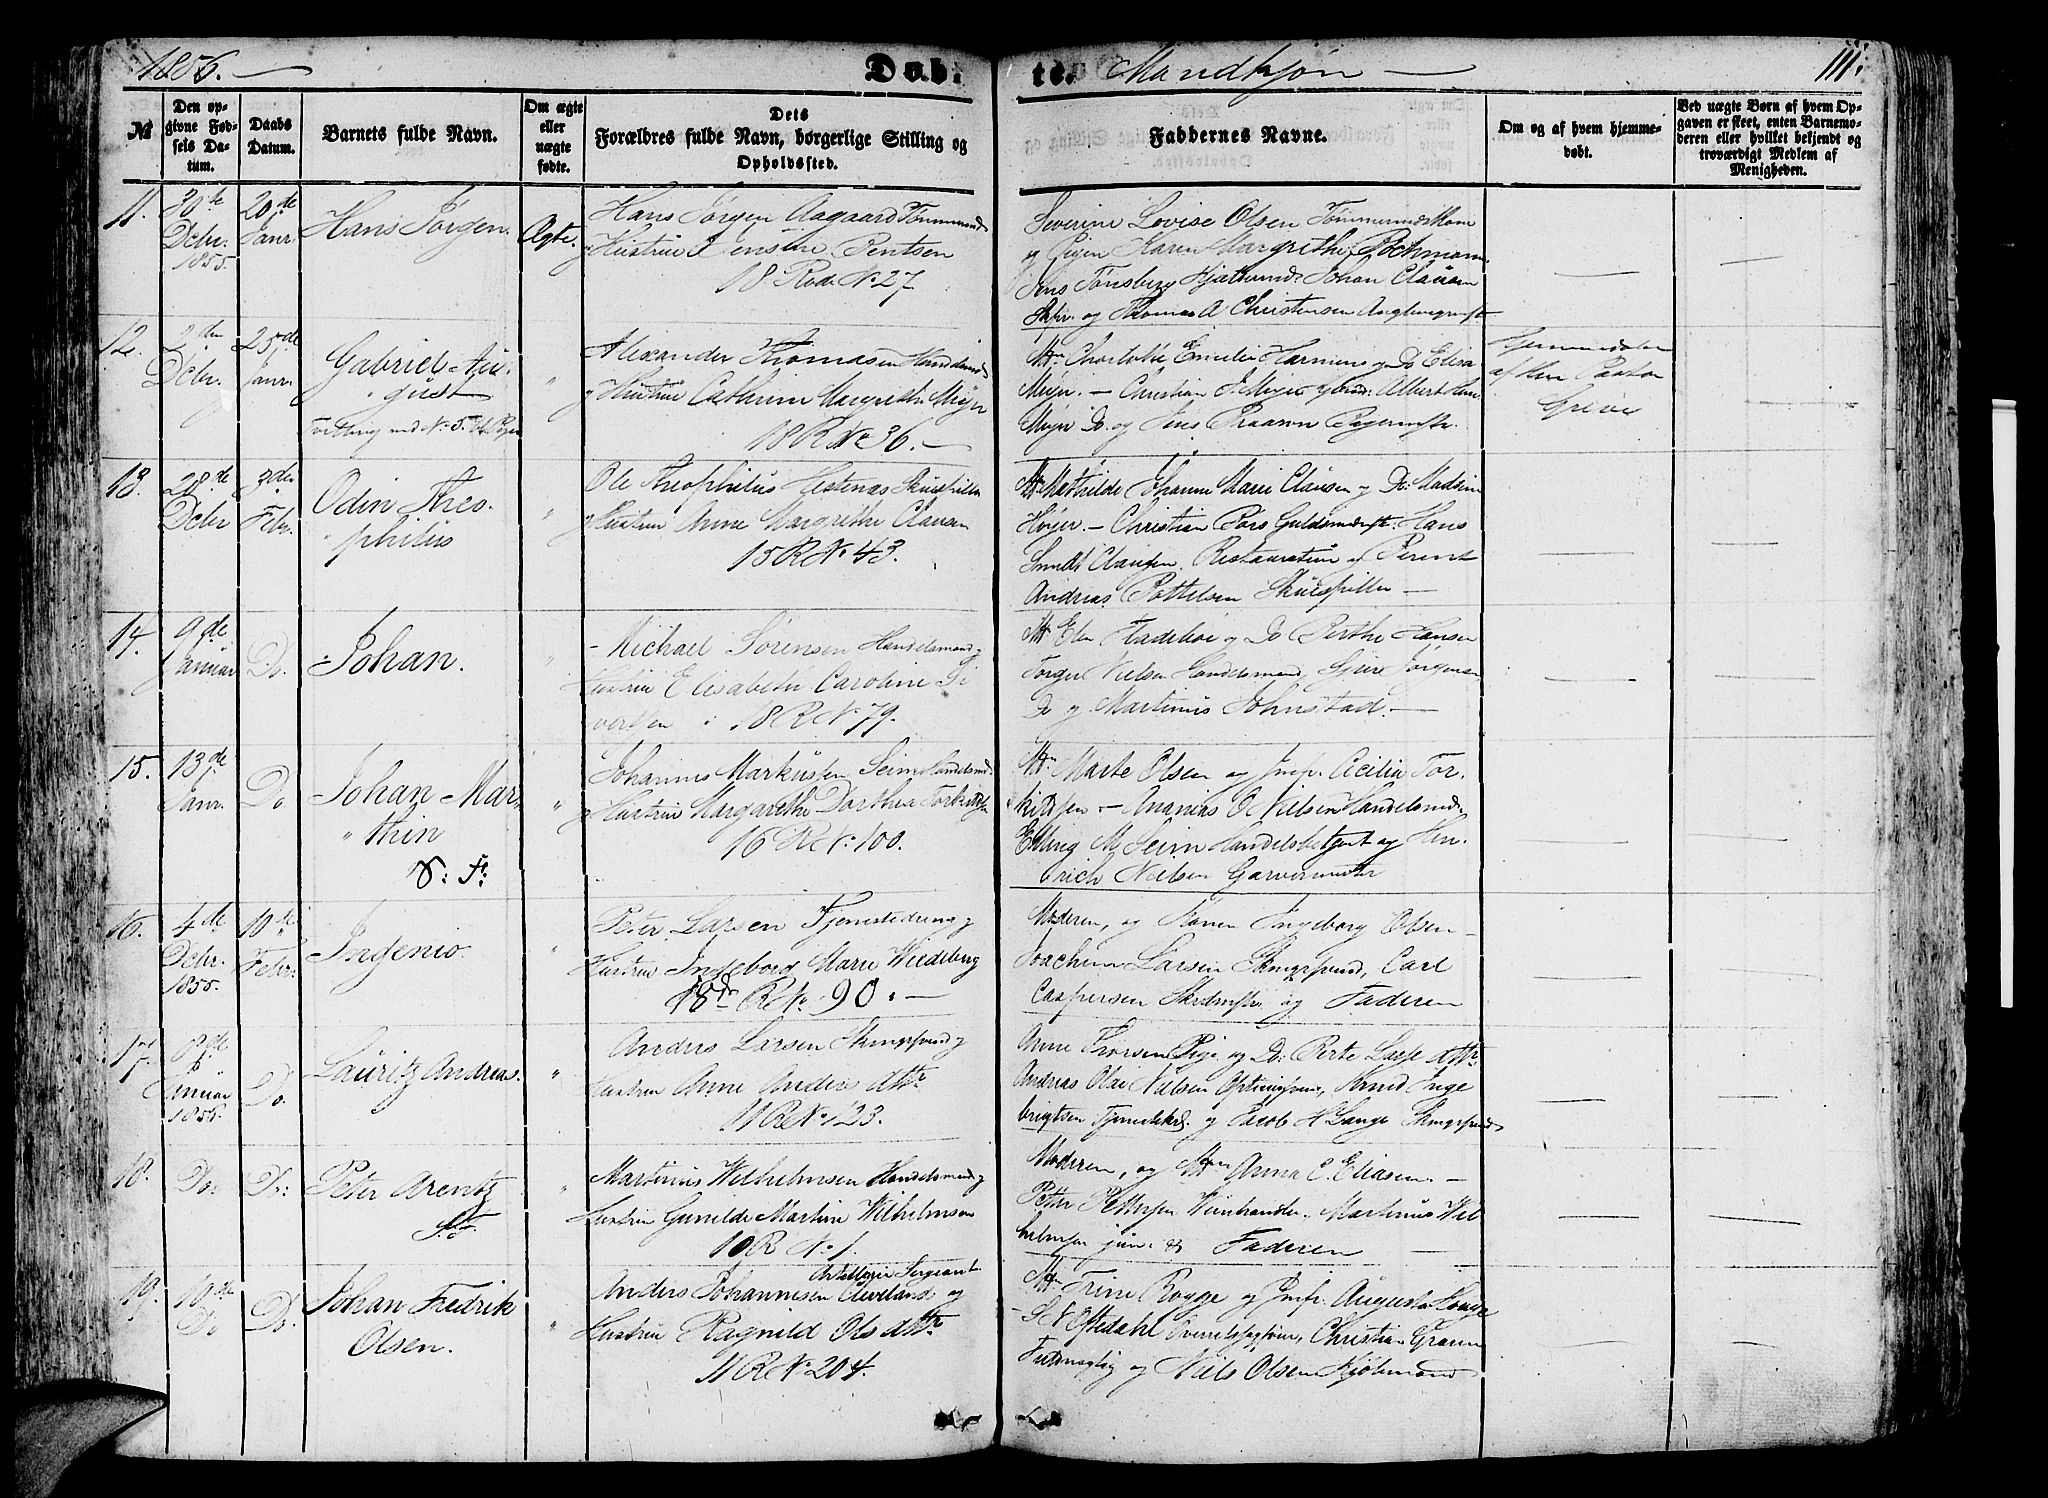 1856. Døb- te. Mandkjøn 111.
No
Den opgivne Fødsels Datum.
Daabs Datum.
Barnets fulde Navn.
Om ægte eller uægte fødte.
Dets Forældres fulde Navn, borgerlige Stilling og Opholdssted.
Faddernes Navne.
Om og af hvem hjemmedøbt.
Ved uægte Børn af hvem Opgaven er skeet, enten Barnemoderen eller hvilket bekjendt og troværdigt Medlem af Menigheden.
11. 30te Dcbr. 1855. 20de Janr. Hans Jørgen. Ægte.
Hans Jørgen Aagaard Tømmermd
og Hustrue Jensine Bentsen
18 Rode No 27
Severine Lovise Olsen
og Pigen Karen Margrethe
Jens Tønsberg Johan Clausen
og Thomas A Christensen
12. 2den Dcbr. 25de Janr. Gabriel Au-
gust
Tvilling med No 5 Piger
Alexander Thomasen Handelsmd
og Hustrue Cathrine Margrethe Meyer
18 R No 36.
Emilie Harmens og Do Elisa
Meyer. Christian Meyer Albert
Meyer Do. og Jens
Hjemmedøbt
af Herr Pastor
Greve
13. 28de Dcbr 3die Febr. Odin Theo-
philus
Ole Theophilus Hestenæs Skuespiller
og Hustrue Anne Margrethe Clausen
15 R No 43.
Mathilde Johanne Marie Clausen og Do: Madsine
Høyer. Christian Pors Guldsmedsv: Hans
Smidt Clausen Restauratiør og Berent
Andreas Skuespiller
14. 9de Januar Do. Johan.
Michael Sørensen Handelsmand og
Hustrue Elisabeth Caroline Si-
vertsen 18 R No 79.
Md Elen og Do Berthe Hansen
Torger Nielsen Handelsmand,
Do og Martinus Johnstad.
15. 13de Janr. Do Johan Mar-
thin
V: F:
Johannes Markussen Seim Handelsmd.
og Hustrue Margarethe Dorthea Torkildsen
16 R No 100.
Md Marte Olsen og Jmfr. Cicilia Tor-
kildsen. Ananias O Nielsen Handelsmd.
Elling M. Seim Handelsbetjent og Hen-
drich Nielsen Garvermester
16. 4de Dcbr. 1855. 10de Febr. Ingenio.
Peter Larsen Tjenestedreng og
Hustrue Ingeborg Marie Wiedeberg
18de R No 90.
Moderen, og Konen Ingeborg Olsen
Joachim Larsen Carl
Caspersen og Faderen
17. 8de Januar 1856. Do. Lauritz Andreas.
Anders Larsen og
Hustrue Anne Anders Dttr
11 R No 123.
Anne Thorsen Pige og Do: Berte Lasse Dttr.
Andreas Olai Nielsen Inge-
brigtsen og Jacob H Lange
18. Do: Do: Peter Arentz
Martinus Wilhelmsen Handelsmand og
Hustrue Gunilde Martine Wilhelmsen
10 R No 1.
Moderen, og Md Anna C. Eliasen.
Petter Pettersen Martinus Wil-
helmsen jun: og Faderen
19. 10de Do Do. Johan Fredrik
Olsen.
Artillerie Sergeant
Anders Johannesen Cleveland og
Hustrue Ragnild Ols Dttr
11 R No 204.
Md Trine Rogge og Jmfr. Augusta
Oftedahl Christian
og Niels Olsen Kjøbmand